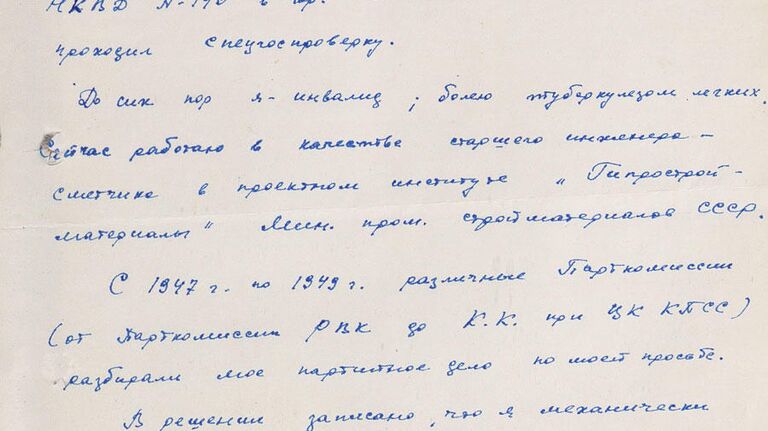 НКВД
проходил спецгоспроверку.
До сих пор я - инвалид; болею туберкулезом легких.
Сейчас работаю в качестве старшего инженера-
сметчика в проектном институте „Гипрострой-
материалы" Мин. пром. стройматериалов СССР.
С 1947 г. по 1949 г. различные Парткомиссии
(от Парткомиссии РВК до К.К. при ЦК КПСС)
разбирали мое партийное дело по моей просьбе.
В решении записано, что я механически